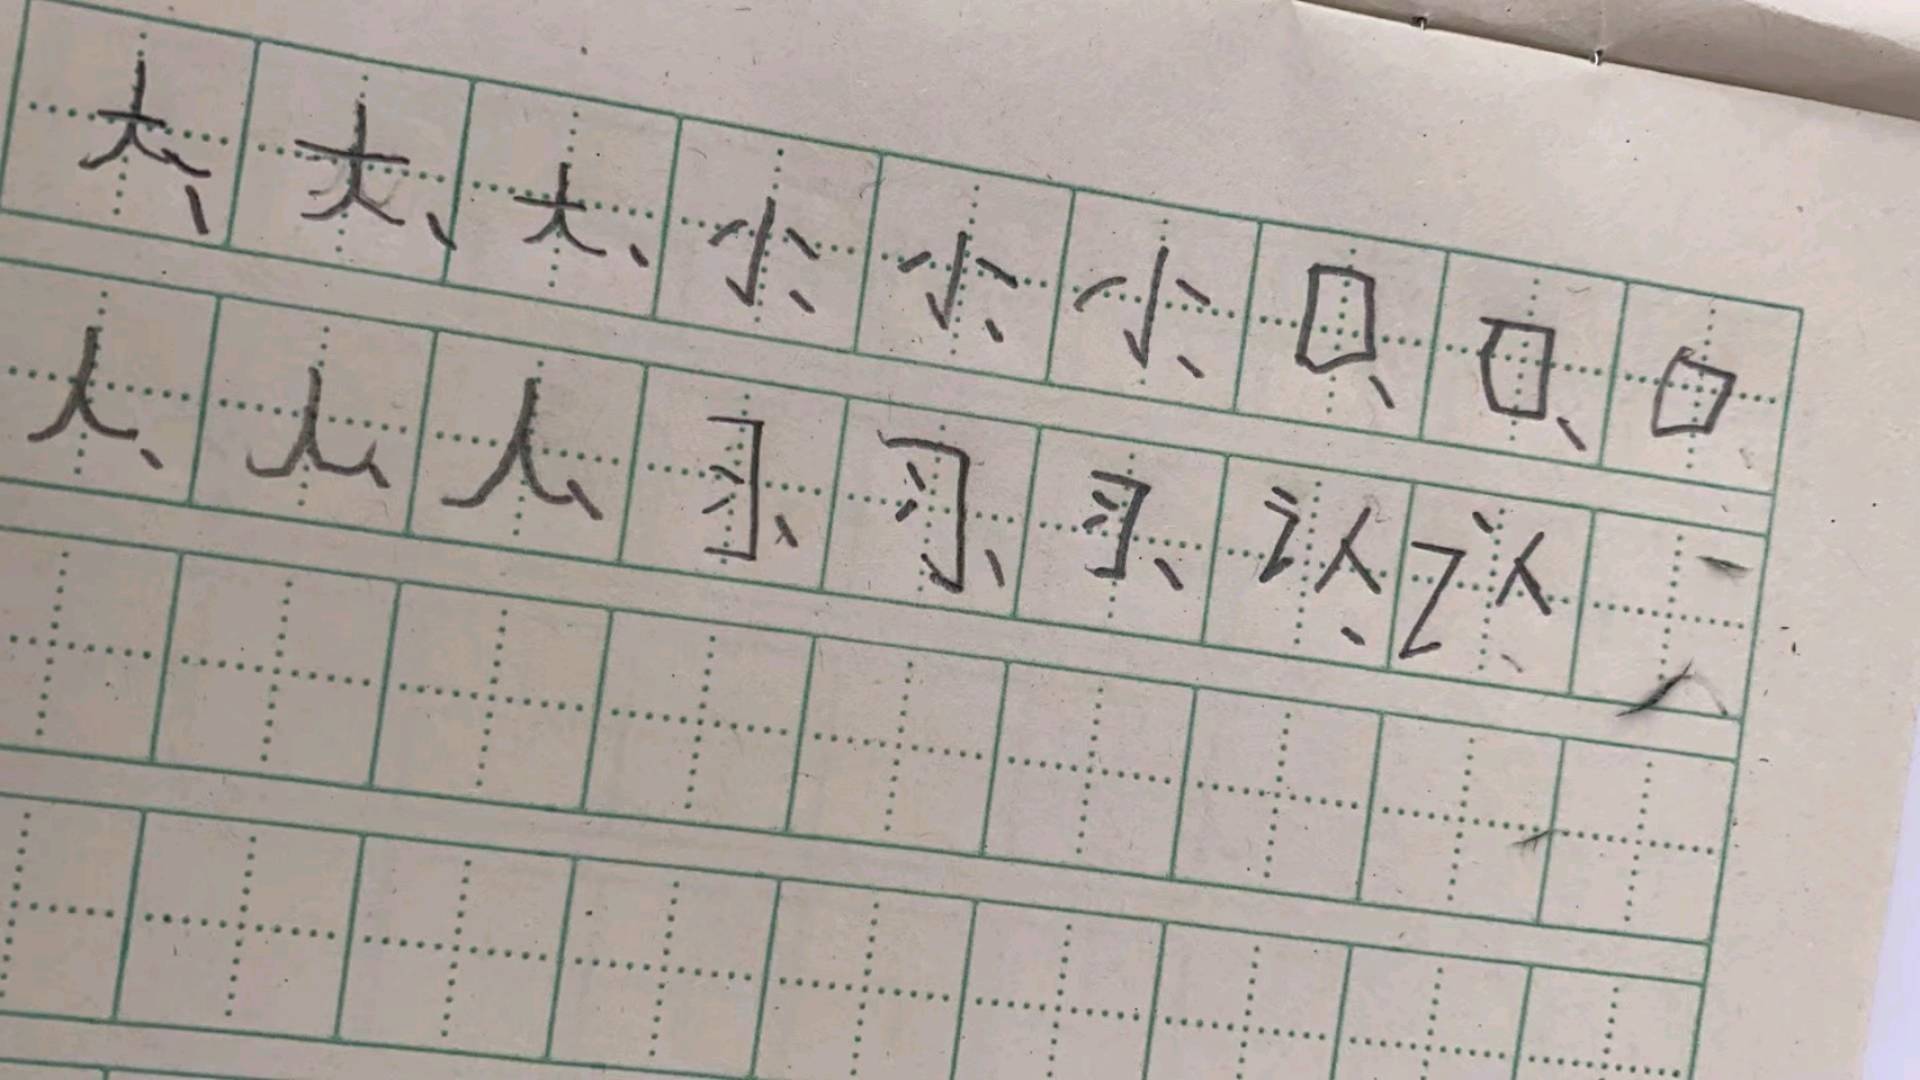 大、大、大、小、小、小、口、口、口、
人、人、人、习、习、习、认、认、